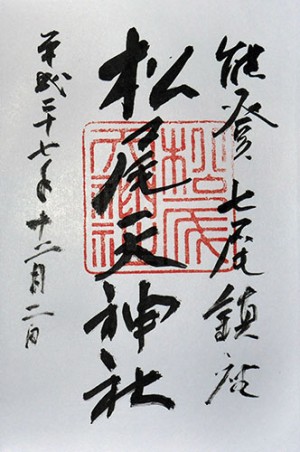 能登七尾鎮座
松尾天神社
平成二十七年十二月二日